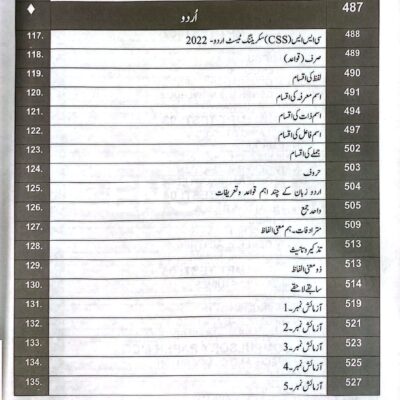 ♦ اُردو 487
117. سی ایس ایس (CSS) سکریننگ ٹیسٹ اردو - 2022 488
118. صرف (قواعد) 489
119. لفظ کی اقسام 490
120. اسم معرفہ کی اقسام 491
121. اسم ذات کی اقسام 494
122. اسم فاعل کی اقسام 497
123. جملے کی اقسام 502
124. حروف 503
125. اردو زبان کے چند اہم قواعد و تعریفات 504
126. واحد جمع 505
127. مترادفات۔ ہم معنی الفاظ 509
128. تذکیر و تانیث 513
129. ذو معنی الفاظ 513
130. سابقے لاحقے 514
131. آزمائش نمبر۔ 1 519
132. آزمائش نمبر۔ 2 521
133. آزمائش نمبر۔ 3 523
134. آزمائش نمبر۔ 4 525
135. آزمائش نمبر۔ 5 527